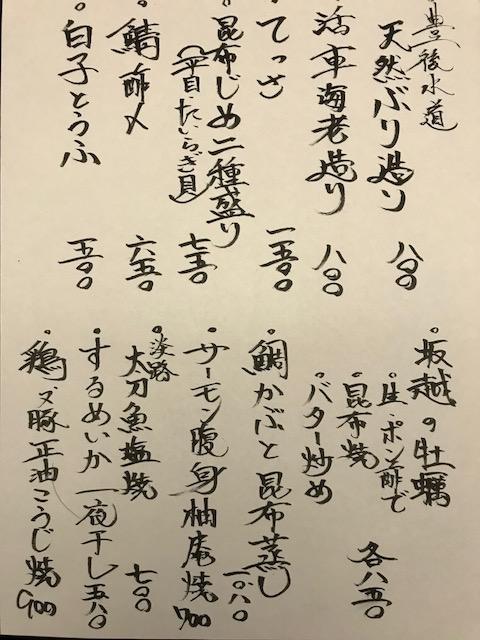 豊後水道
・天然ぶり造り 八〇〇
・活車海老造り 八〇〇
・てっさ 一五〇〇
・昆布じめ二種盛り
(平目・たいらぎ貝) 七五〇
・鯖酢〆 六五〇
・白子とうふ 五〇〇
・坂越の牡蠣
・生・ポン酢で
・昆布焼 各八五〇
・バター炒め
・鯛かぶと昆布蒸し 一〇八〇
・サーモン腹身柚庵焼 700
・淡路太刀魚塩焼 七〇〇
・するめいか一夜干し 五八〇
・鶏又豚正油こうじ焼 900